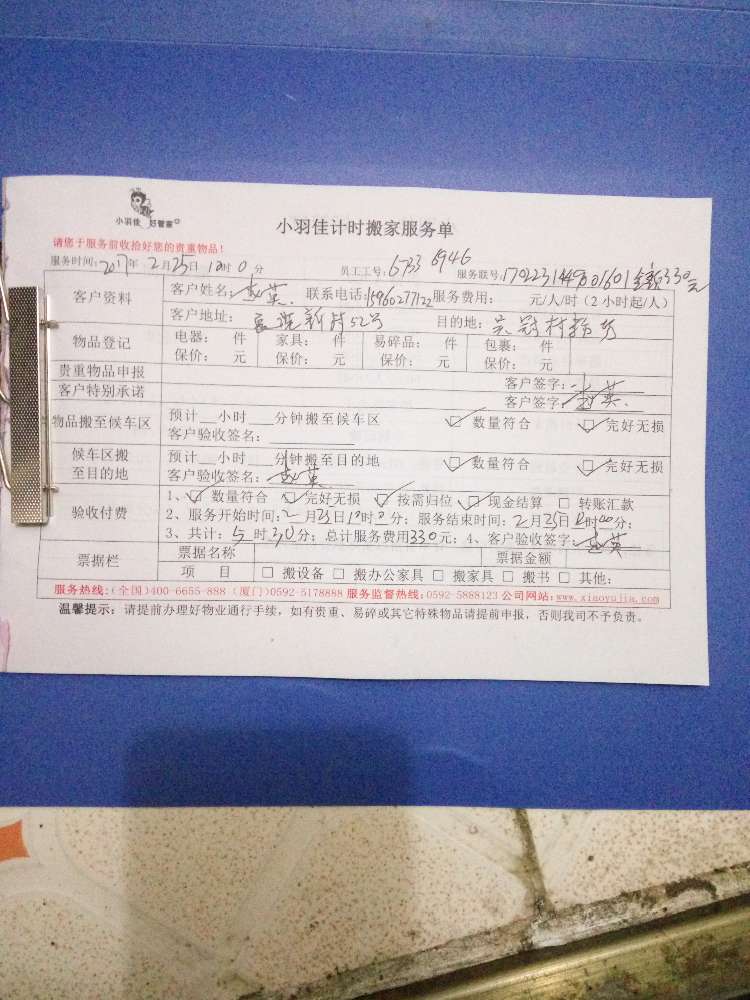 小羽佳 好管家
小羽佳计时搬家服务单
请您于服务前收拾好您的贵重物品！
服务时间：2017年 2月25日 时0分 员工工号：6733 6946 服务联号： 金额330元
客户资料 客户姓名： 英 联系电话：15960277122 服务费用： 元/人/时（2小时起/人）
客户地址： 新村52号 目的地：
物品登记 电器： 件 家具： 件 易碎品： 件 包裹： 件
保价： 元 保价： 元 保价： 元 保价： 元
贵重物品申报 客户签字： 英
客户特别承诺 客户签字： 英
物品搬至候车区 预计__小时___分钟搬至候车区 ☑ 数量符合 ☑ 完好无损
客户验收签名：
候车区搬至目的地 预计__小时___分钟搬至目的地 ☑ 数量符合 ☑ 完好无损
客户验收签名： 英
验收付费 1、☑ 数量符合 ☑ 完好无损 ☑ 按需归位 ☑ 现金结算 □ 转账汇款
2、服务开始时间：2月25日 时 分；服务结束时间：2月25日 时00分；
3、共计：5时30分；总计服务费用330元；4、客户验收签字： 英
票据栏 票据名称 票据金额
项 目 □ 搬设备 □ 搬办公家具 □ 搬家具 □ 搬书 □ 其他：
服务热线：（全国）400-6655-888（厦门）0592-5178888 服务监督热线：0592-5888123 公司网站：www.xiaoyujia.com
温馨提示：请提前办理好物业通行手续，如有贵重、易碎或其它特殊物品请提前申报，否则我司不予负责。